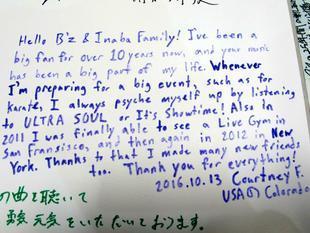 Hello B'z & Inaba Family! I've been a
big fan for over 10 years now, and your music
has been a big part of my life. Whenever
I'm preparing for a big event, such as for
karate, I always psyche myself up by listening
to ULTRA SOUL or It's Showtime! Also in
2011 I was finally able to see a Live Gym in
San Fransisco, and then again in 2012 in New
York. Thanks to that I made many new friends
too. Thank you for everything!
2016.10.13 Courtney F.
USAの Colorado
の曲を聴いて
元気をいただいております。